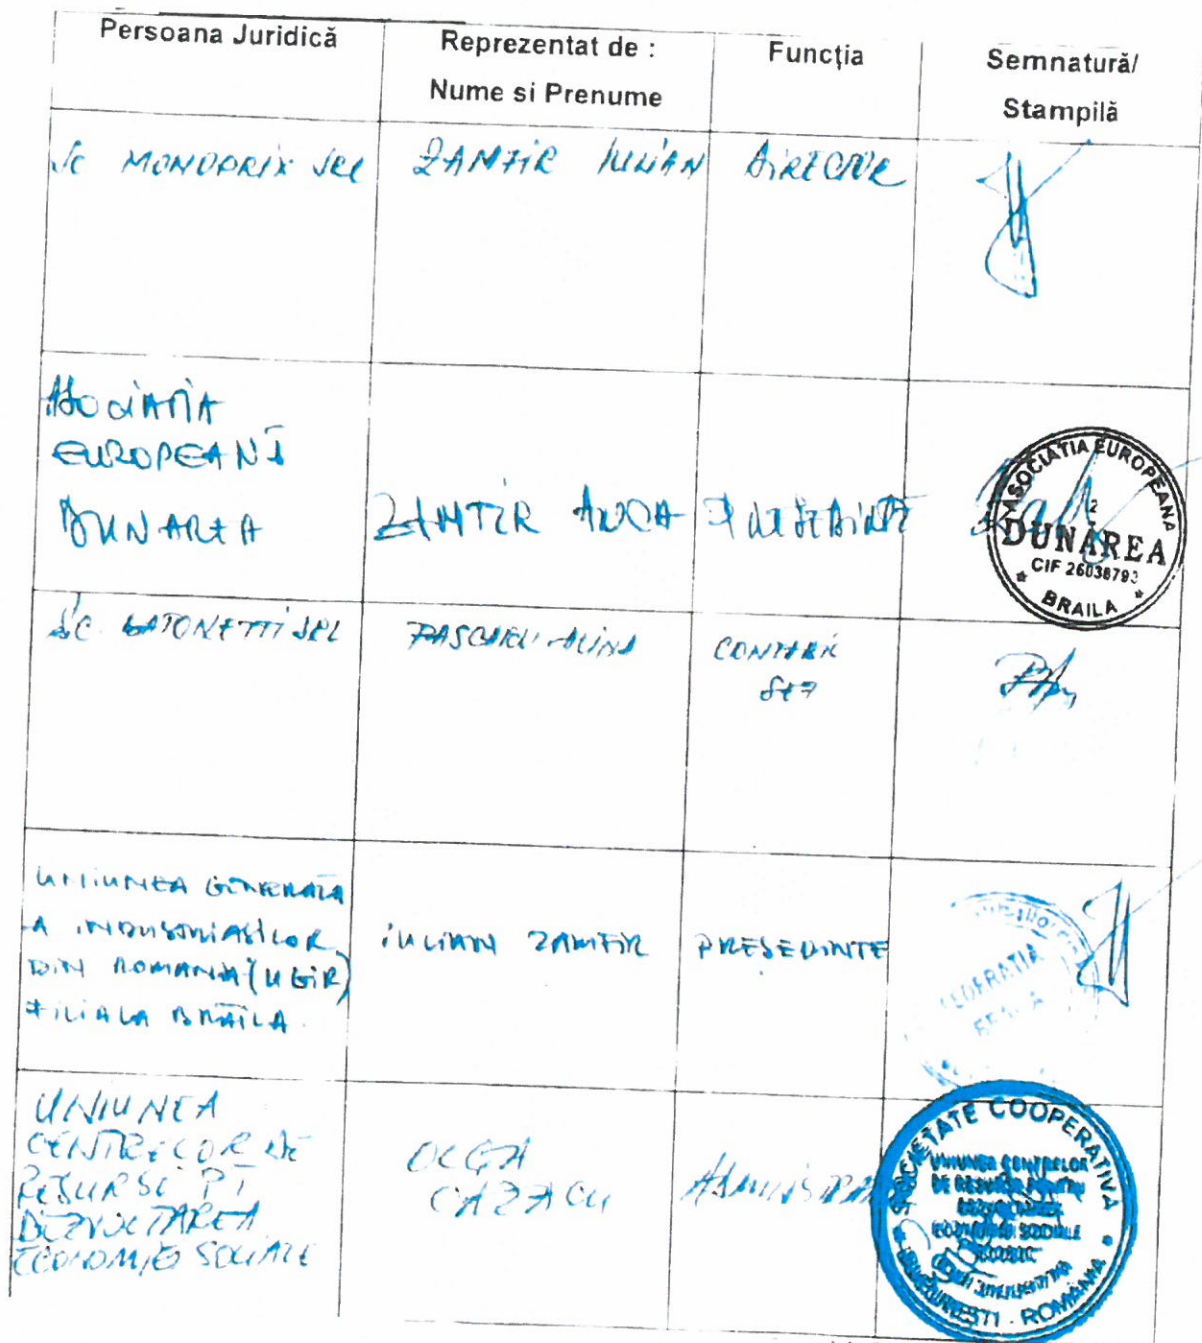 Persoana Juridică
Reprezentat de :
Nume si Prenume
Funcția
Semnatură/
Stampilă
SC MONOPRIX SRL
ZAMFIR IULIAN
DIRECTOR
ASOCIATIA
EUROPEANĂ
DUNAREA
ZAMFIR ANCA
PRESEDINTE
ASOCIATIA EUROPEANA
2
DUNĂREA
CIF 26038793
BRAILA
SC. GATONETTI SRL
PASCARU ALINA
CONTABIL
SEF
UNIUNEA GENERALĂ
A INDUSTRIASILOR
DIN ROMANIA (UGIR)
FILIALA BRĂILA
IULIAN ZAMFIR
PRESEDINTE
FEDERATIA
UNIUNEA
CENTRELOR DE
RESURSE PT
DEZVOLTAREA
ECONOMIEI SOCIALE
OLGA
CAZACU
SOCIETATE COOPERATIVA
UNIUNEA CENTRELOR
DE RESURSE PENTRU
DEZVOLTAREA
ECONOMIEI SOCIALE
BUCURESTI - ROMANIA